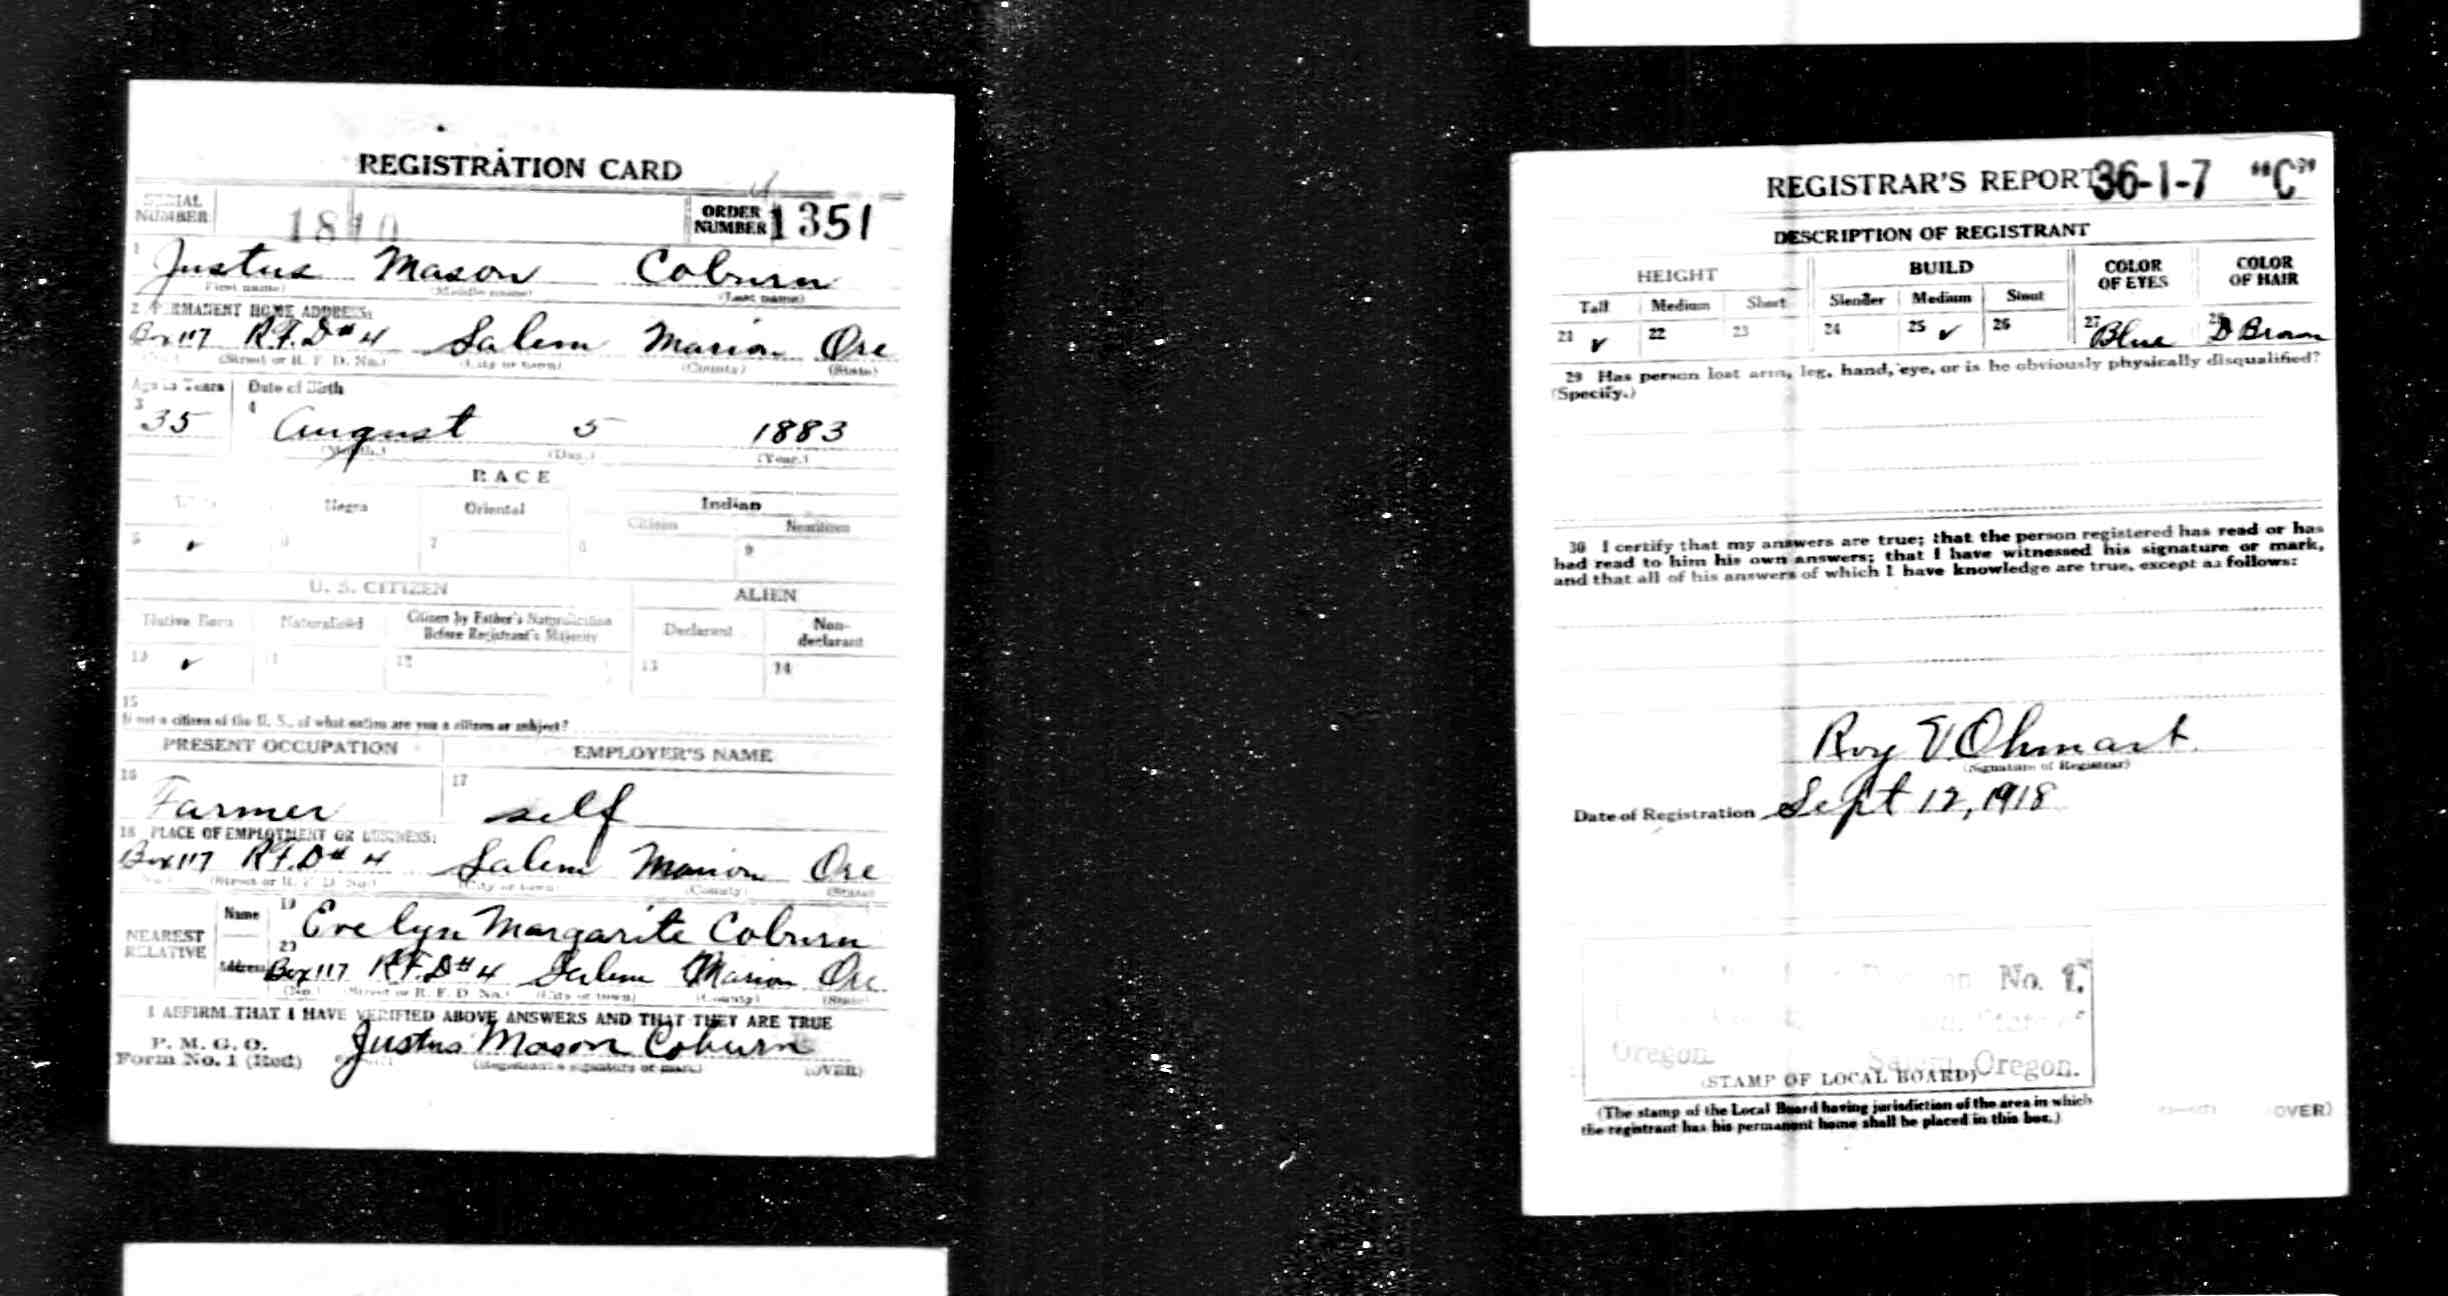 REGISTRATION CARD
SERIAL NUMBER 1810 ORDER NUMBER 1351
1 Justus Mason Coburn
(First name) (Middle name) (Last name)
2 PERMANENT HOME ADDRESS:
Box 117 R.F.D # 4 Salem Marion Ore
(No.) (Street or R. F. D. No.) (City or town) (County) (State)
Age in Years Date of Birth
3 35 4 August 5 1883
(Month.) (Day.) (Year.)
RACE
White Negro Oriental Indian
Citizen Noncitizen
5 ✓ 6 7 8 9
U. S. CITIZEN ALIEN
Native Born Naturalized Citizen by Father's Naturalization Before Registrant's Majority Declarant Non-declarant
10 ✓ 11 12 13 14
15
If not a citizen of the U. S., of what nation are you a citizen or subject?
PRESENT OCCUPATION EMPLOYER'S NAME
16 Farmer 17 self
18 PLACE OF EMPLOYMENT OR BUSINESS:
Box 117 R.F.D # 4 Salem Marion Ore
(No.) (Street or R. F. D. No.) (City or town) (County) (State)
NEAREST RELATIVE Name 19 Evelyn Margarite Coburn
Address 20 Box 117 R.F.D # 4 Salem Marion Ore.
(No.) (Street or R. F. D. No.) (City or town) (County) (State)
I AFFIRM THAT I HAVE VERIFIED ABOVE ANSWERS AND THAT THEY ARE TRUE
P. M. G. O.
Form No. 1 (Red) Justus Mason Coburn
(Registrant's signature or mark) (OVER)
REGISTRAR'S REPORT 36-1-7 "C"
DESCRIPTION OF REGISTRANT
HEIGHT BUILD COLOR OF EYES COLOR OF HAIR
Tall Medium Short Slender Medium Stout
21 ✓ 22 23 24 25 ✓ 26 27 Blue 28 D Brown
29 Has person lost arm, leg, hand, eye, or is he obviously physically disqualified?
(Specify.)
30 I certify that my answers are true; that the person registered has read or has
had read to him his own answers; that I have witnessed his signature or mark,
and that all of his answers of which I have knowledge are true, except as follows:
Roy V Ohmart
(Signature of Registrar)
Date of Registration Sept 12, 1918
No. 1,
State of
Oregon. Salem, Oregon.
(STAMP OF LOCAL BOARD)
(The stamp of the Local Board having jurisdiction of the area in which
the registrant has his permanent home shall be placed in this box.)
(OVER)